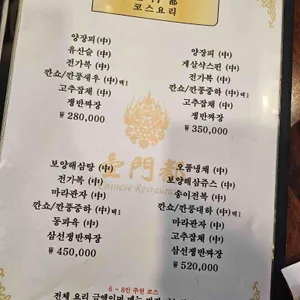 코스요리
양장피 (中)
유산슬 (中)
전가복 (中)
깐쇼/깐풍새우 (中)택1
고추잡채 (中)
쟁반짜장
₩ 280,000
양장피 (中)
게살샥스핀 (中)
전가복 (中)
깐쇼/깐풍중하 (中)택1
고추잡채 (中)
쟁반짜장
₩ 350,000
壹門都
Chinese Restaurant
보양해삼탕 (中)
전가복 (中)
마라관자 (中)
깐쇼/깐풍중하 (中)택1
동파육 (中)
삼선쟁반짜장
₩ 450,000
오품냉채 (中)
보양해삼쥬스 (中)
송이전복 (中)
깐쇼/깐풍대하 (中)택1
마라관자 (中)
고추잡채 (中)
삼선쟁반짜장
₩ 520,000
6 ~ 8인 추천 코스
전체 요리 금액이며